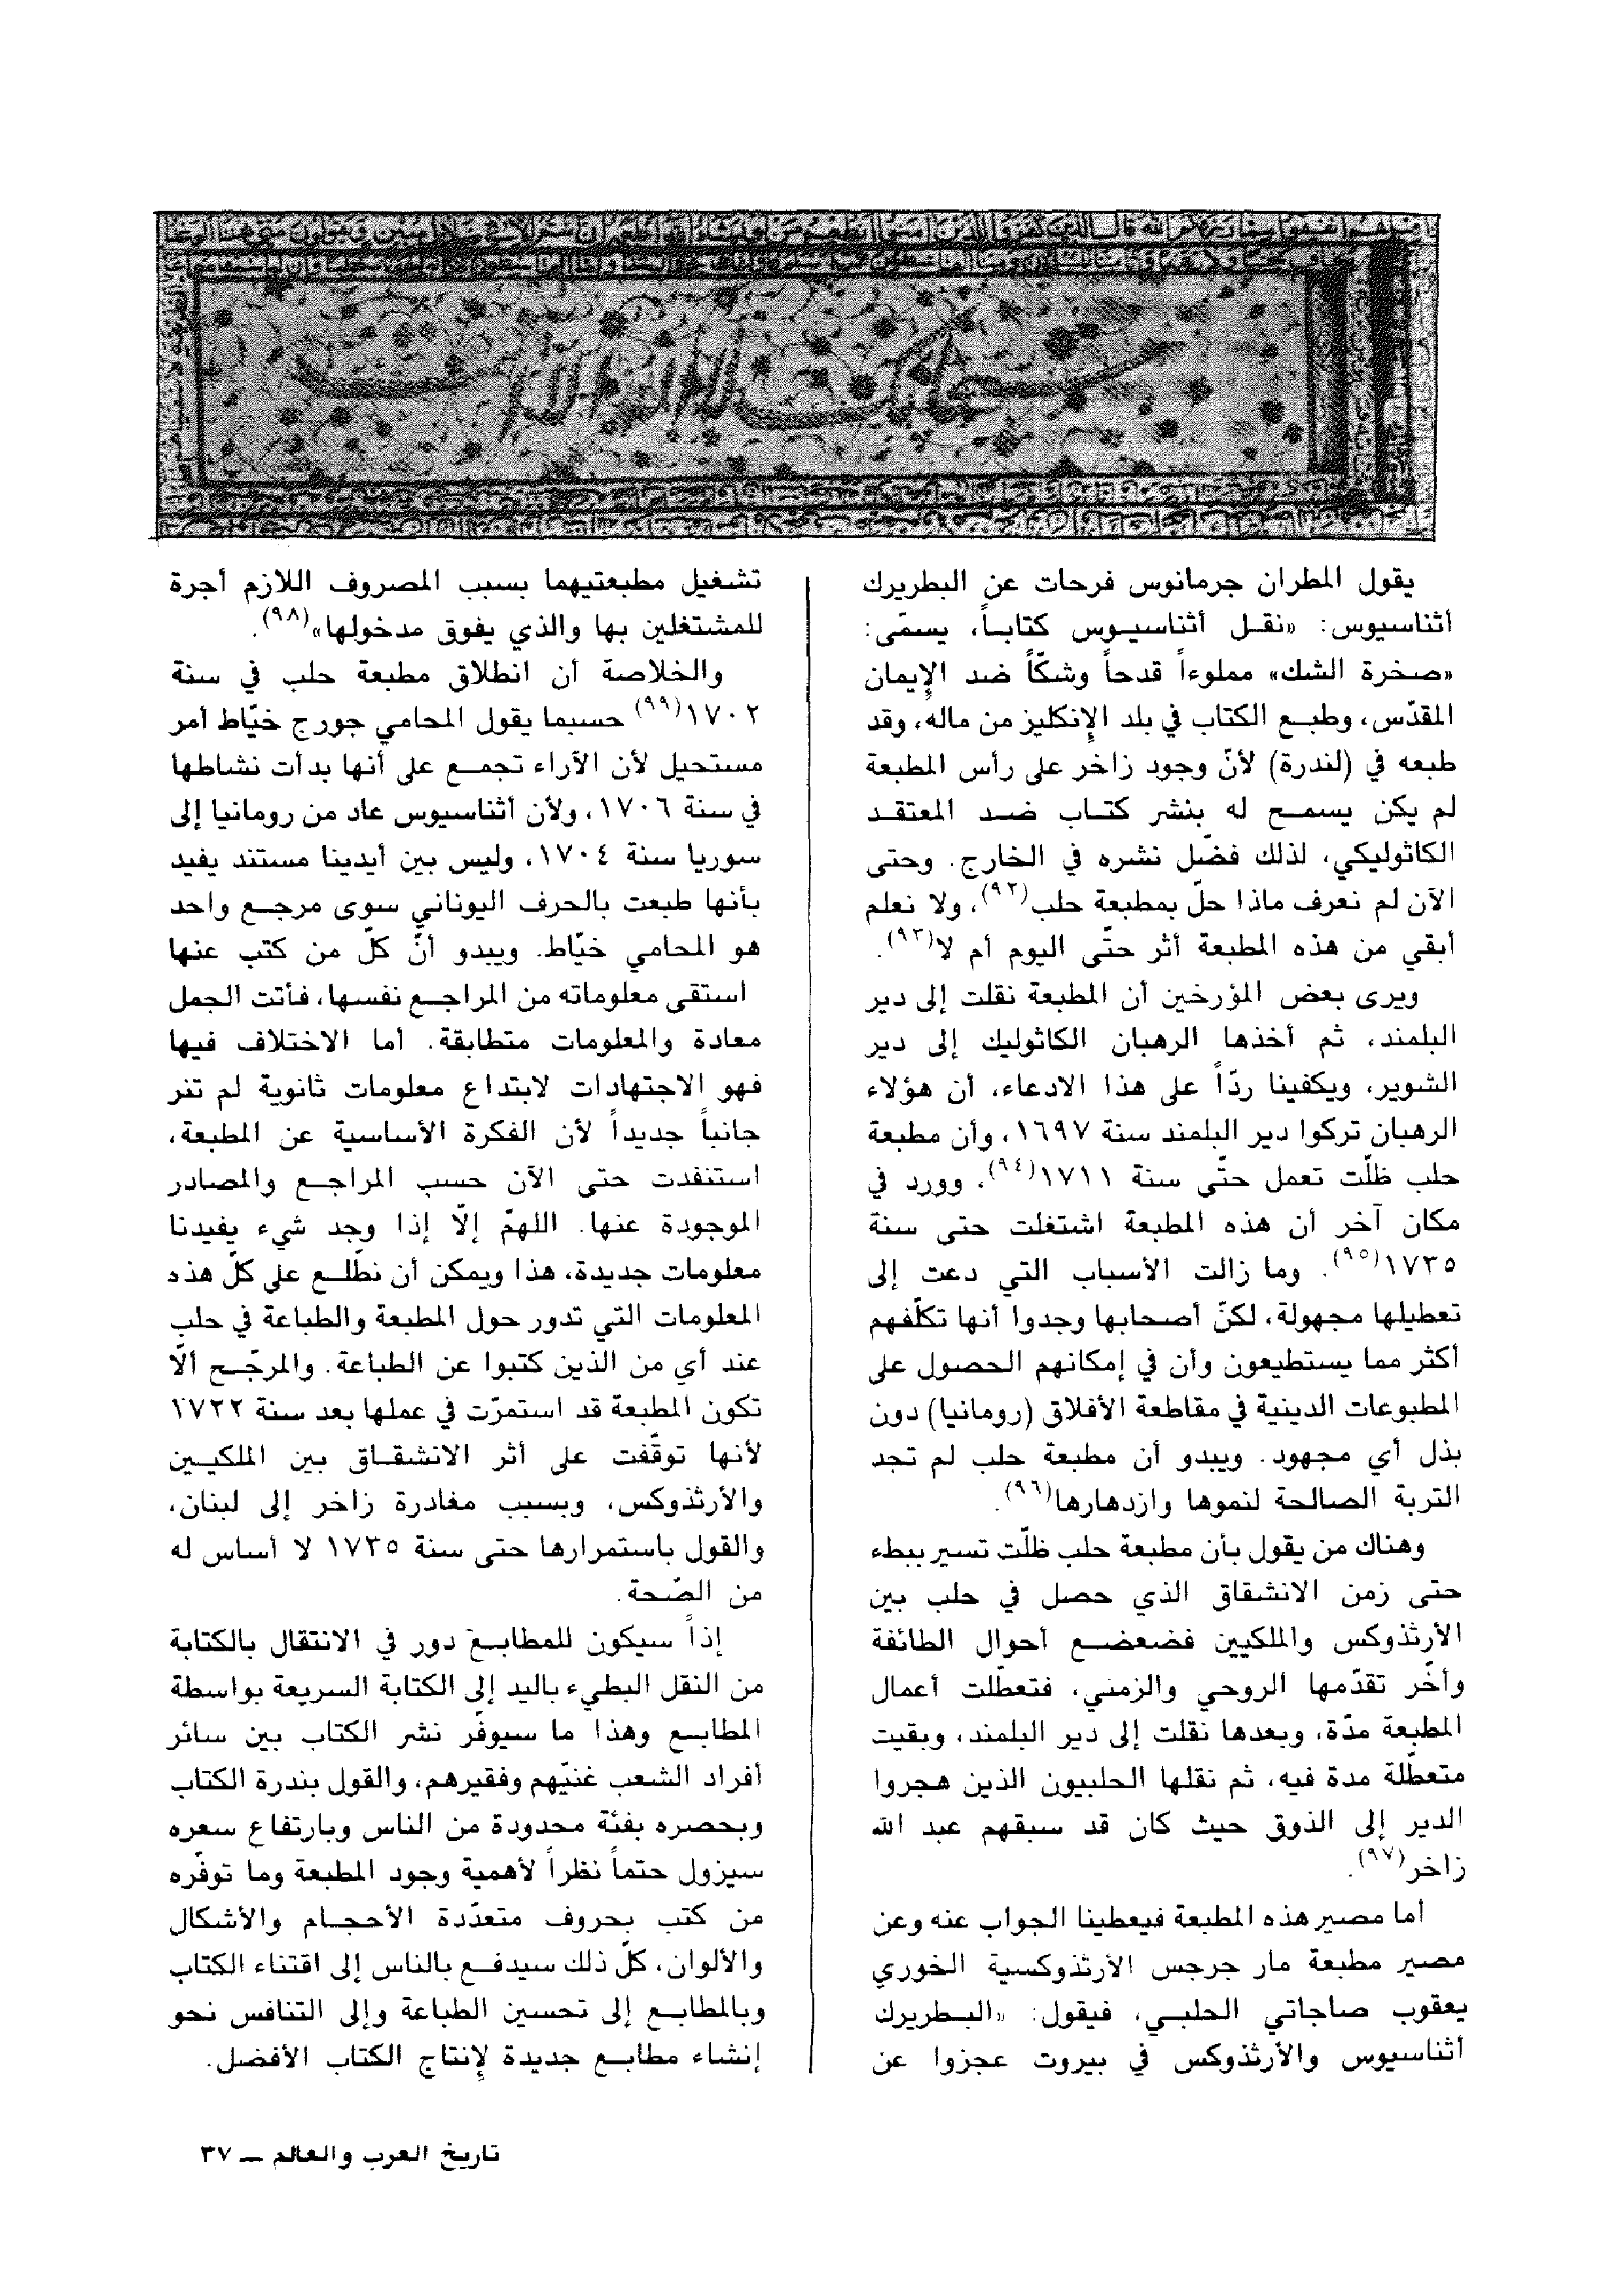 يقول المطران جرمانوس فرحات عن البطريرك
أثناسيوس: «نقل أثناسيوس كتاباً، يسمّى:
«صخرة الشك» مملوءاً قدحاً وشكّاً ضد الإيمان
المقدّس، وطبع الكتاب في بلد الإنكليز من ماله، وقد
طبعه في (لندرة) لأنّ وجود زاخر على رأس المطبعة
لم يكن يسمح له بنشر كتاب ضد المعتقد
الكاثوليكي، لذلك فضّل نشره في الخارج. وحتى
الآن لم نعرف ماذا حلّ بمطبعة حلب(٩٢)، ولا نعلم
أبقي من هذه المطبعة أثر حتّى اليوم أم لا(٩٣).
ويرى بعض المؤرخين أن المطبعة نقلت إلى دير
البلمند، ثم أخذها الرهبان الكاثوليك إلى دير
الشوير، ويكفينا ردّاً على هذا الادعاء، أن هؤلاء
الرهبان تركوا دير البلمند سنة ١٦٩٧، وأن مطبعة
حلب ظلّت تعمل حتّى سنة ١٧١١(٩٤)، وورد في
مكان آخر أن هذه المطبعة اشتغلت حتى سنة
١٧٣٥(٩٥). وما زالت الأسباب التي دعت إلى
تعطيلها مجهولة، لكنّ أصحابها وجدوا أنها تكلّفهم
أكثر مما يستطيعون وأن في إمكانهم الحصول على
المطبوعات الدينية في مقاطعة الأفلاق (رومانيا) دون
بذل أي مجهود. ويبدو أن مطبعة حلب لم تجد
التربة الصالحة لنموها وازدهارها(٩٦).
وهناك من يقول بأن مطبعة حلب ظلّت تسير ببطء
حتى زمن الانشقاق الذي حصل في حلب بين
الأرثذوكس والملكيين فضعضع أحوال الطائفة
وأخّر تقدّمها الروحي والزمني، فتعطّلت أعمال
المطبعة مدّة، وبعدها نقلت إلى دير البلمند، وبقيت
متعطّلة مدة فيه، ثم نقلها الحلبيون الذين هجروا
الدير إلى الذوق حيث كان قد سبقهم عبد الله
زاخر(٩٧).
أما مصير هذه المطبعة فيعطينا الجواب عنه وعن
مصير مطبعة مار جرجس الأرثذوكسية الخوري
يعقوب صاجاتي الحلبي، فيقول: «البطريرك
أثناسيوس والأرثذوكس في بيروت عجزوا عن
تشغيل مطبعتيهما بسبب المصروف اللازم أجرة
للمشتغلين بها والذي يفوق مدخولها»(٩٨).
والخلاصة أن انطلاق مطبعة حلب في سنة
١٧٠٢(٩٩) حسبما يقول المحامي جورج خيّاط أمر
مستحيل لأن الآراء تجمع على أنها بدأت نشاطها
في سنة ١٧٠٦، ولأن أثناسيوس عاد من رومانيا إلى
سوريا سنة ١٧٠٤، وليس بين أيدينا مستند يفيد
بأنها طبعت بالحرف اليوناني سوى مرجع واحد
هو المحامي خيّاط. ويبدو أنّ كلّ من كتب عنها
استقى معلوماته من المراجع نفسها، فأتت الجمل
معادة والمعلومات متطابقة. أما الاختلاف فيها
فهو الاجتهادات لابتداع معلومات ثانوية لم تنر
جانباً جديداً لأن الفكرة الأساسية عن المطبعة،
استنفدت حتى الآن حسب المراجع والمصادر
الموجودة عنها. اللهمّ إلّا إذا وجد شيء يفيدنا
معلومات جديدة، هذا ويمكن أن نطّلع على كلّ هذه
المعلومات التي تدور حول المطبعة والطباعة في حلب
عند أي من الذين كتبوا عن الطباعة. والمرجّح ألّا
تكون المطبعة قد استمرّت في عملها بعد سنة ١٧٢٢
لأنها توقّفت على أثر الانشقاق بين الملكيين
والأرثذوكس، وبسبب مغادرة زاخر إلى لبنان،
والقول باستمرارها حتى سنة ١٧٣٥ لا أساس له
من الصّحة.
إذاً سيكون للمطابع دور في الانتقال بالكتابة
من النقل البطيء باليد إلى الكتابة السريعة بواسطة
المطابع وهذا ما سيوفّر نشر الكتاب بين سائر
أفراد الشعب غنيّهم وفقيرهم، والقول بندرة الكتاب
وبحصره بفئة محدودة من الناس وبارتفاع سعره
سيزول حتماً نظراً لأهمية وجود المطبعة وما توفّره
من كتب بحروف متعدّدة الأحجام والأشكال
والألوان، كلّ ذلك سيدفع بالناس إلى اقتناء الكتاب
وبالمطابع إلى تحسين الطباعة وإلى التنافس نحو
إنشاء مطابع جديدة لإنتاج الكتاب الأفضل.
تاريخ العرب والعالم ــ ٣٧